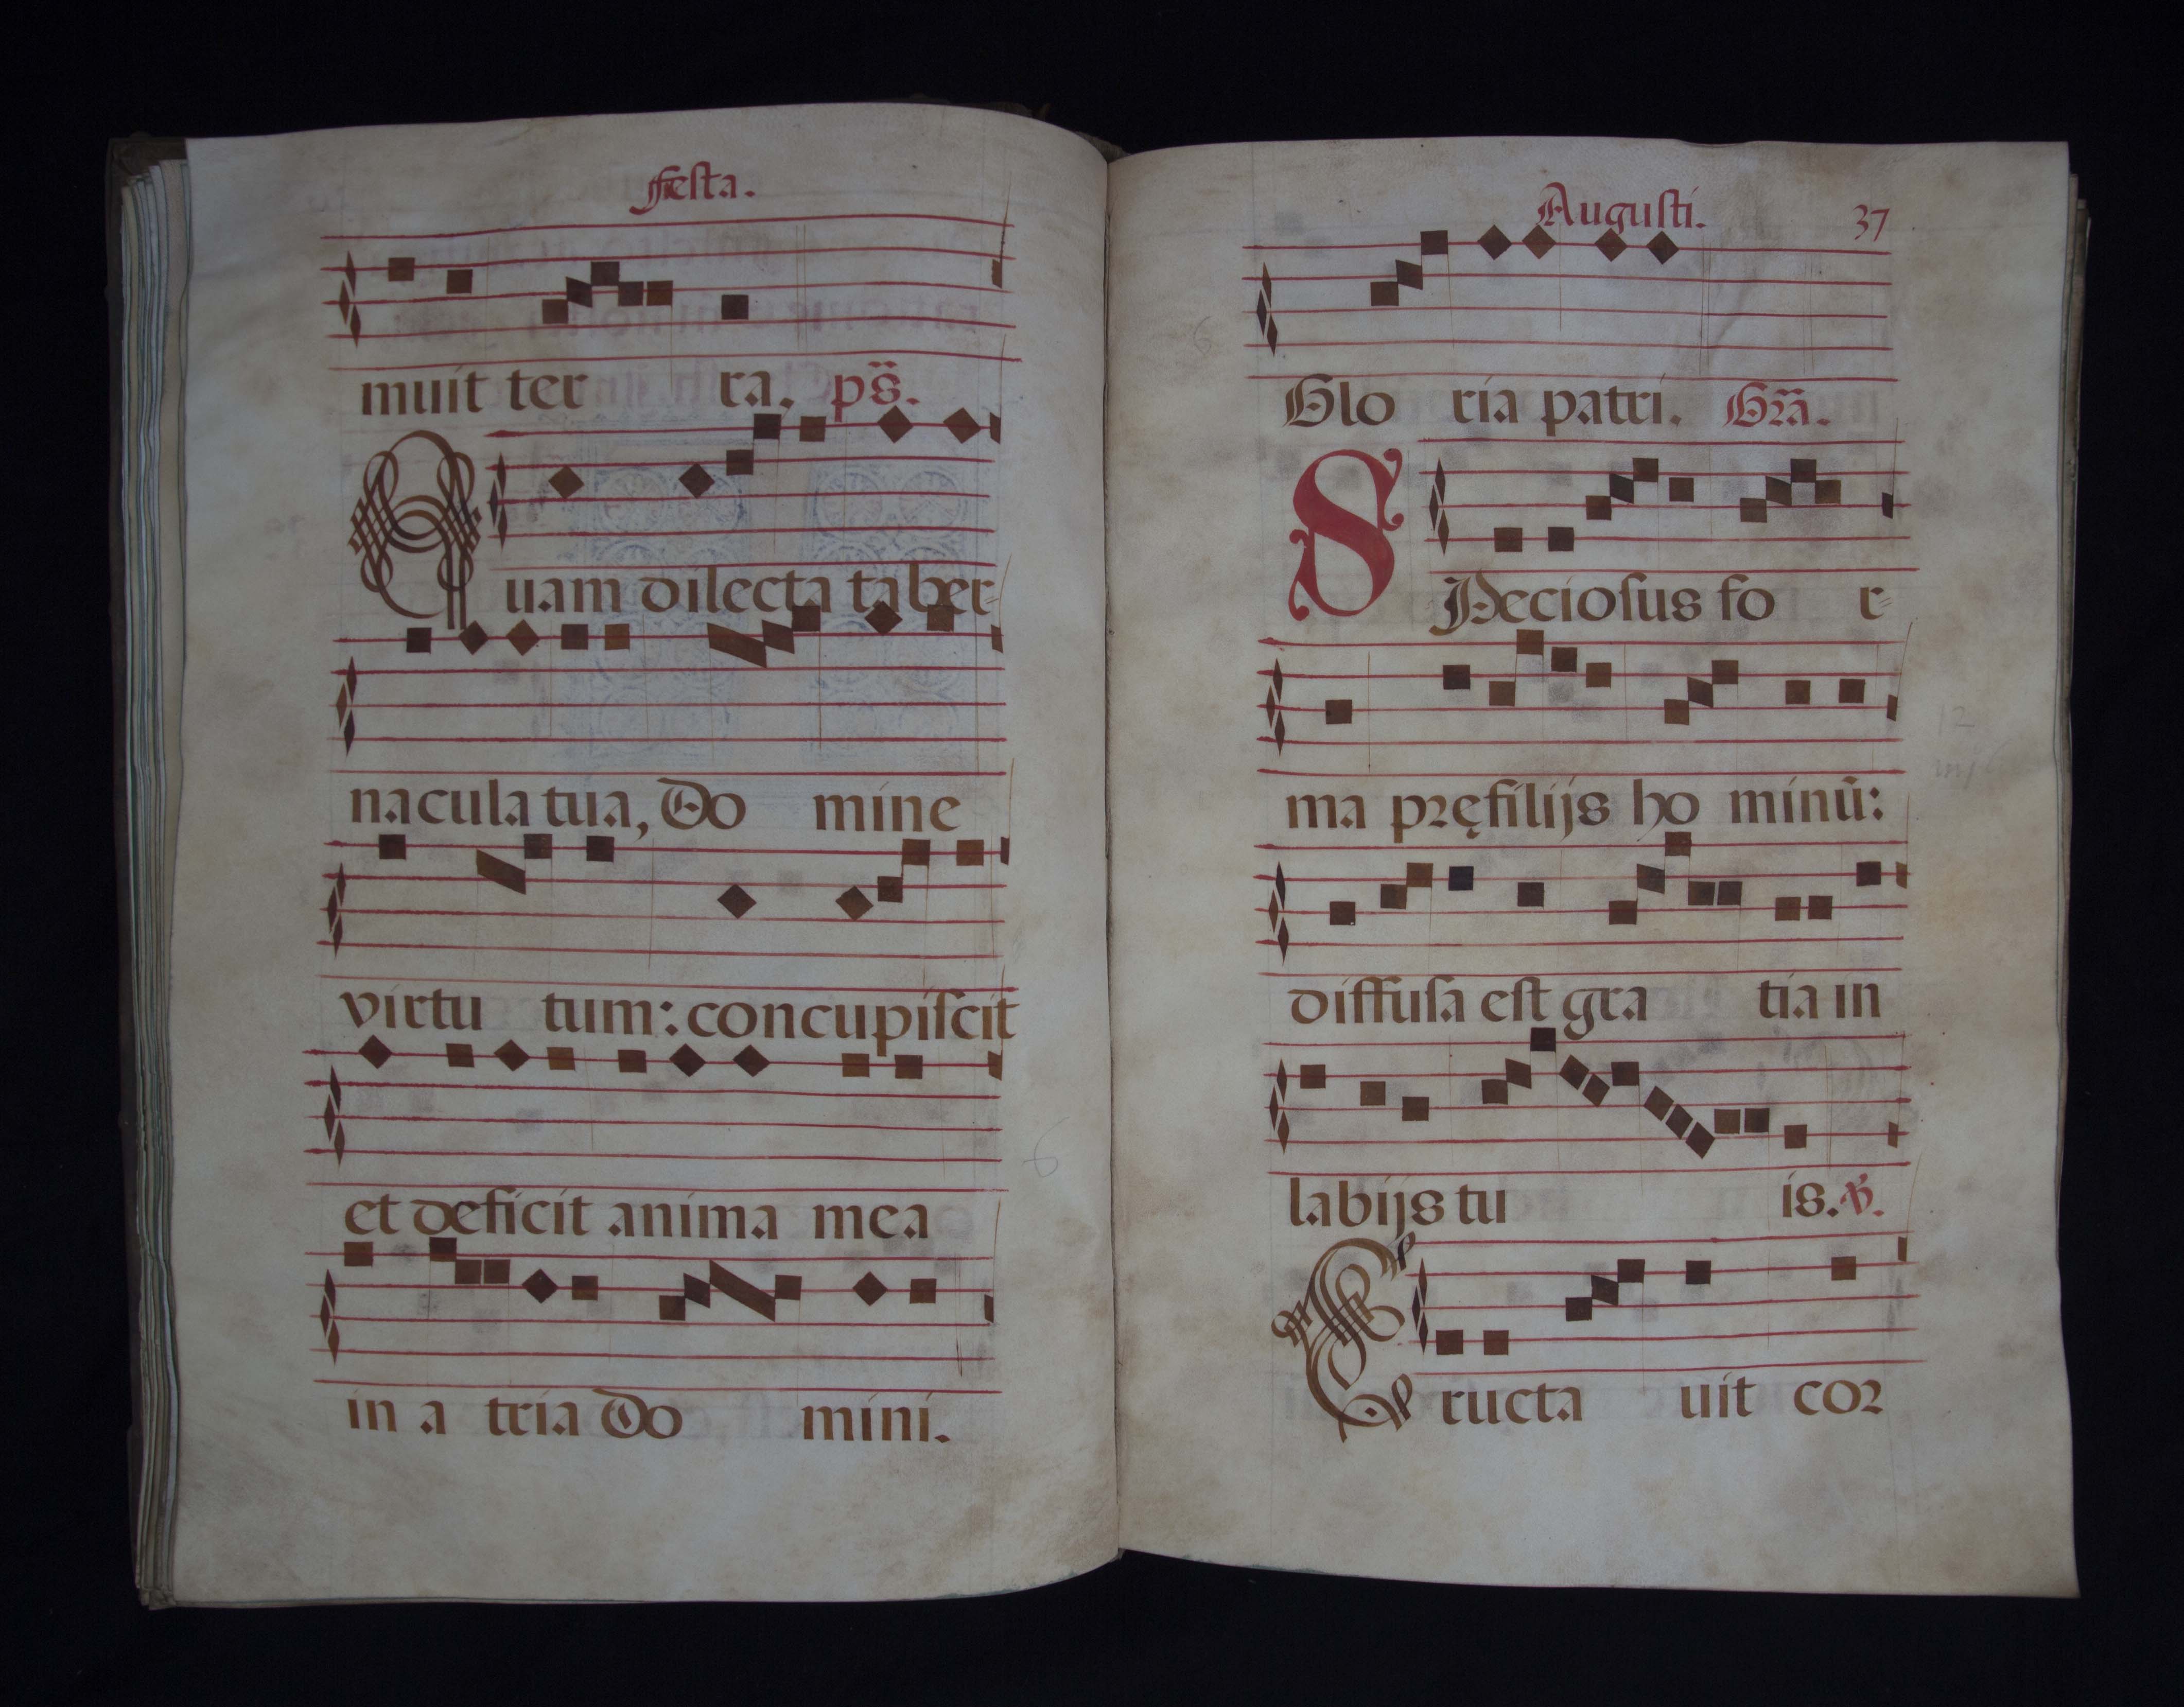 festa.
muit ter ra. ps̃.
Quam dilecta taber-
nacula tua, Do mine
virtu tum: concupiſcit
et deficit anima mea
in a tria Do mini.
Auguſti. 37
Glo ria patri. Gr̃a.
SPecioſus fo r-
ma pręfilijs ho minũ:
diffuſa eſt gra tia in
labijs tu is. ℣.
Eructa uit cor